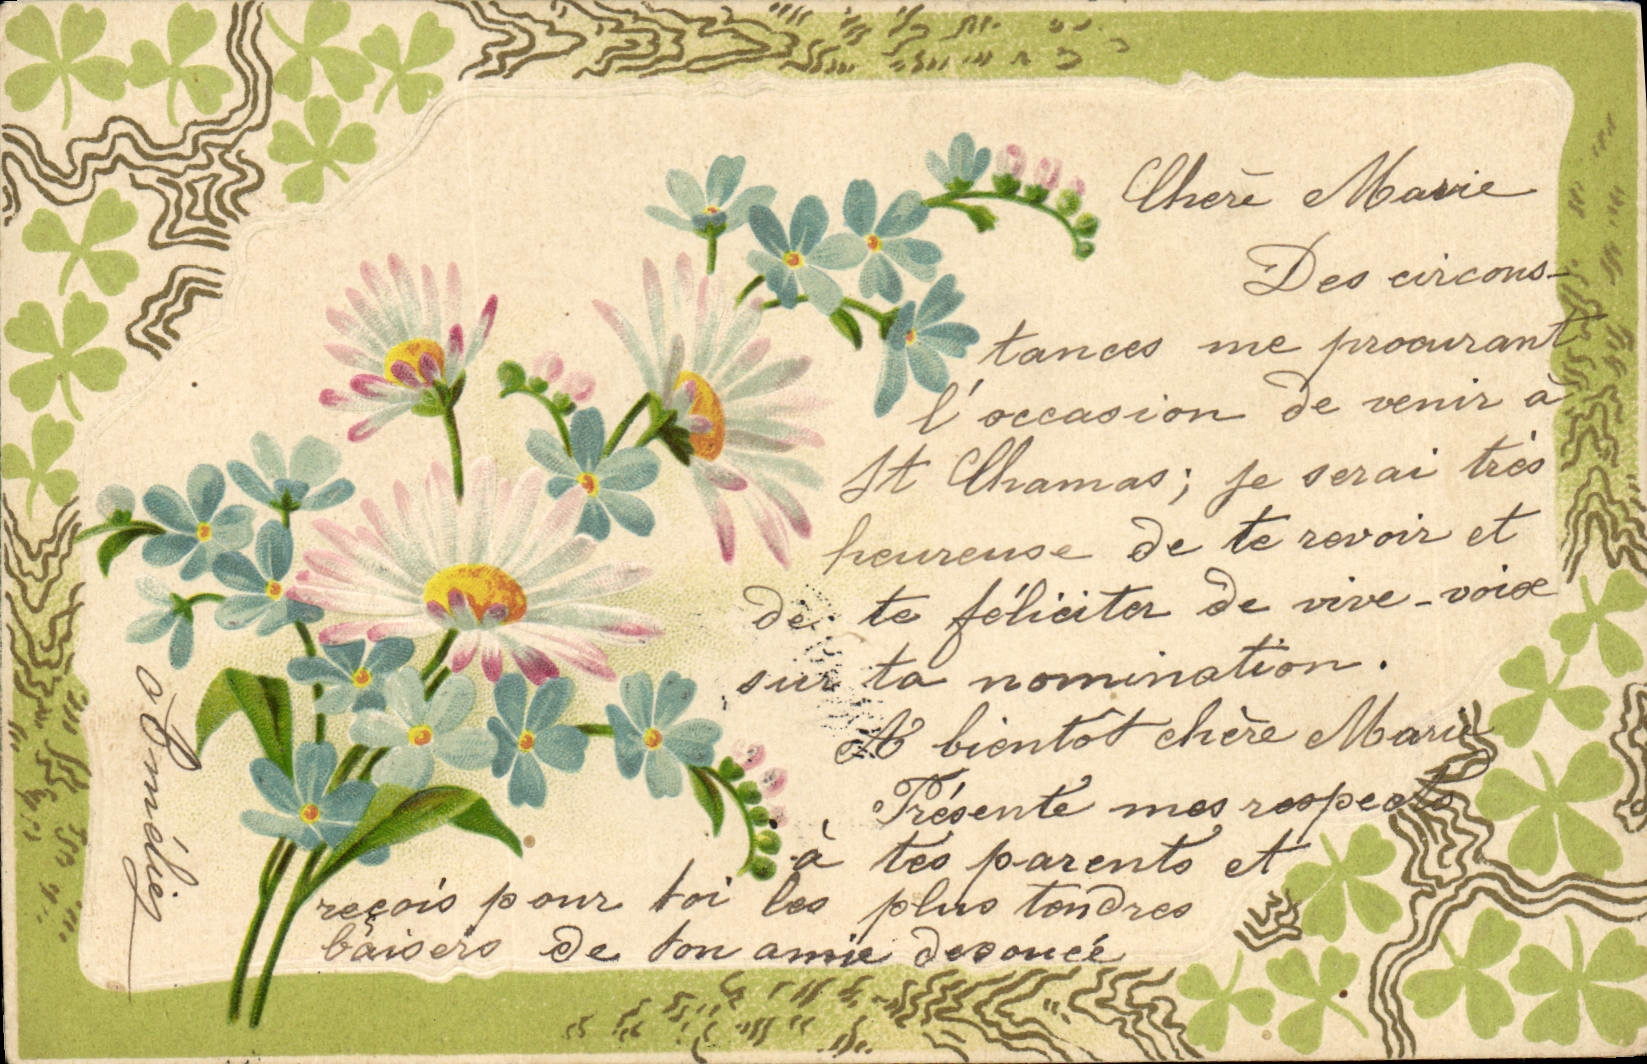 Chère Marie
Des circons-
tances me procurant
l'occasion de venir à
St Chamas; je serai très
heureuse de te revoir et
de te féliciter de vive-voix
sur ta nomination.
A bientôt chère Marie
Présente mes respects
à tes parents et
reçois pour toi les plus tendres
baisers de ton amie